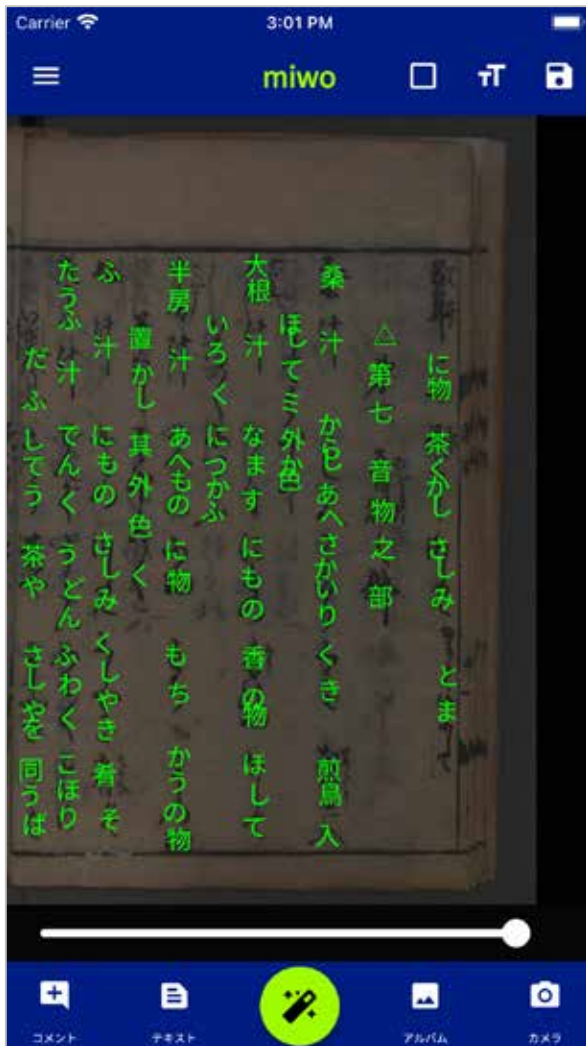 Carrier 3:01 PM
miwo
に物 茶くかし さしみ とま
⚠ 第七 音物之部
桑 汁 からし あへ さかいり くき 煎鳥 入
ほしてミ 外か色
大根 汁 なます にもの 香の物 ほして
いろく につかふ
半房 汁 あへもの に物 もち かうの物
置かし 其外色く
ふ 汁 にもの さしみ くしやき 肴 そ
たうふ 汁 でんく うどん ふわく こほり
だふしてう 茶や さしやを 同うば
コメント テキスト アルバム カメラ